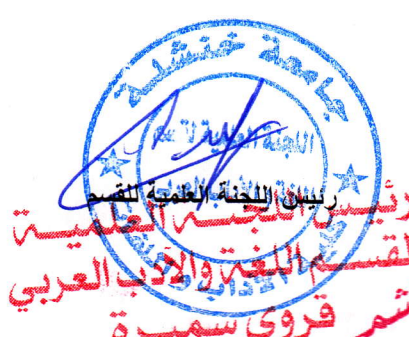 جامعة خنشلة
اللجنة العلمية لقسم
رئيس اللجنة العلمية للقسم
رئيس اللجنة العلمية
لقسم اللغة والأدب العربي
قروي سميرة